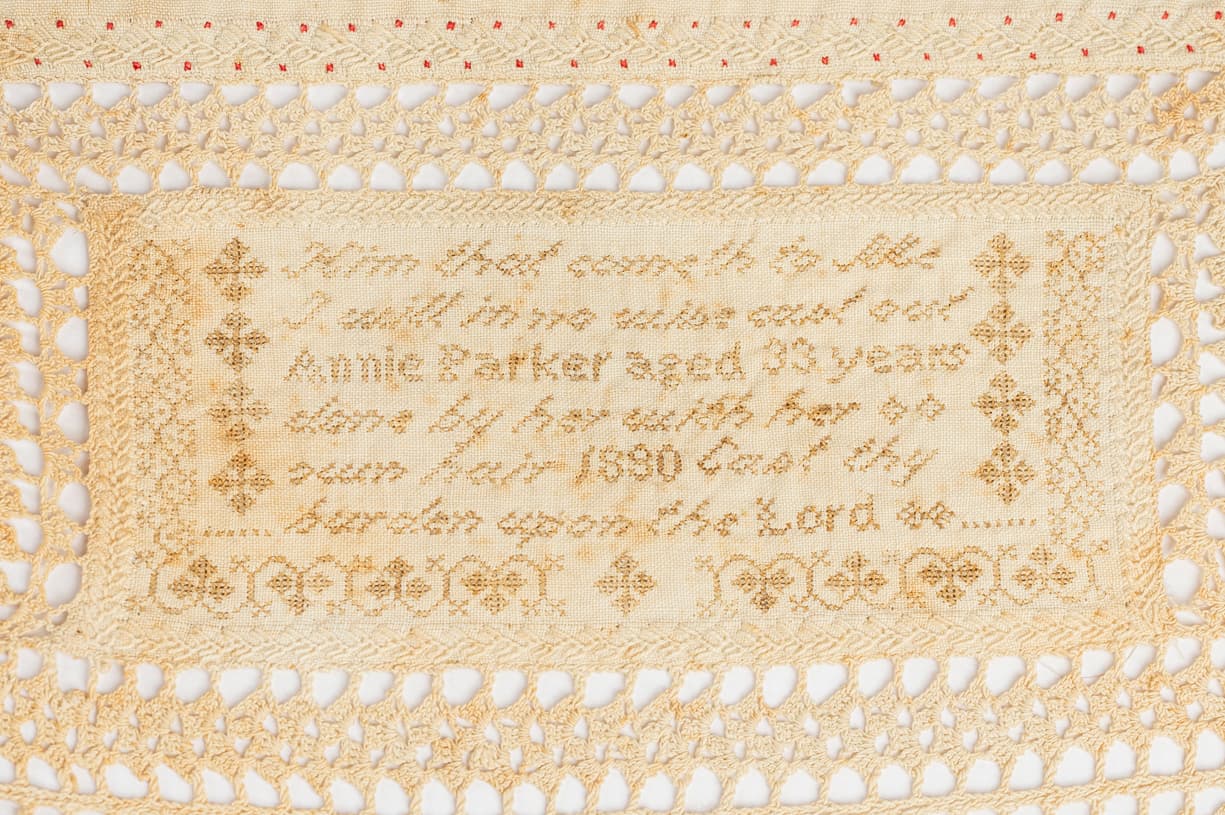 Him that cometh to Me
I will in no wise cast out
Annie Parker aged 33 years
done by her with her
own hair 1880 Cast thy
burden upon the Lord